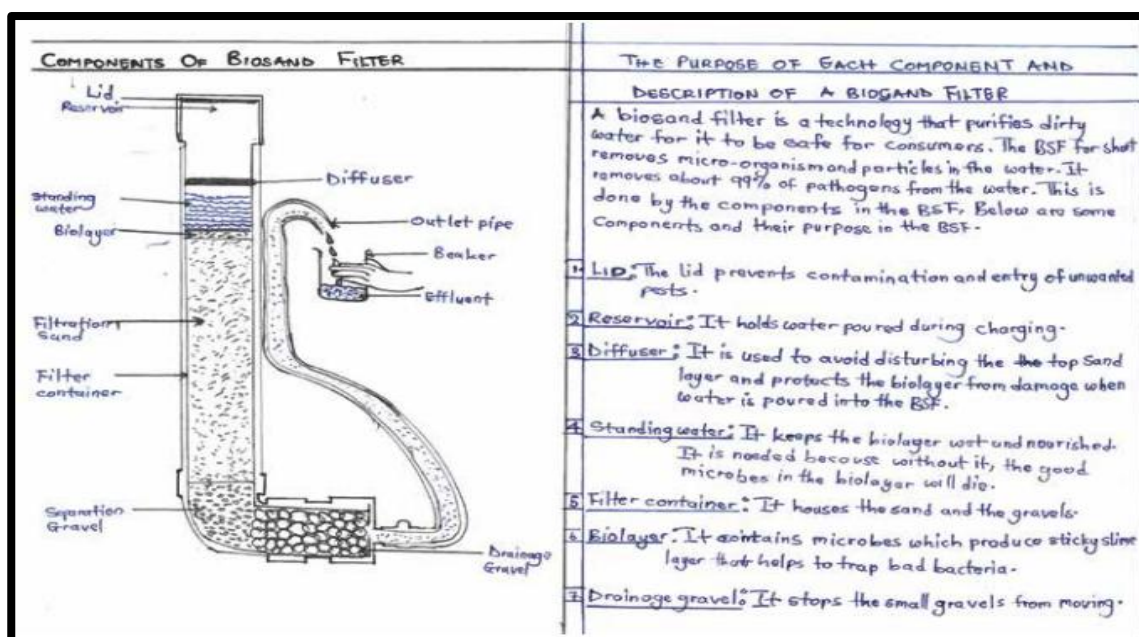 COMPONENTS OF BIOSAND FILTER
Lid
Reservoir
Diffuser
Standing
water
Biolayer
Outlet pipe
Beaker
Effluent
Filtration
Sand
Filter
container
Separation
Gravel
Drainage
Gravel
THE PURPOSE OF EACH COMPONENT AND
DESCRIPTION OF A BIOSAND FILTER
A biosand filter is a technology that purifies dirty
water for it to be safe for consumers. The BSF for short
removes micro-organism and particles in the water. It
removes about 99% of pathogens from the water. This is
done by the components in the BSF. Below are some
Components and their purpose in the BSF.
1 LID: The lid prevents contamination and entry of unwanted
pests.
2 Reservoir: It holds water poured during charging.
3 Diffuser: It is used to avoid disturbing the the top sand
layer and protects the biolayer from damage when
water is poured into the BSF.
4 Standing water: It keeps the biolayer wet and nourished.
It is needed because without it, the good
microbes in the biolayer will die.
5 Filter container: It houses the sand and the gravels.
6 Biolayer: It contains microbes which produce sticky slime
layer that helps to trap bad bacteria.
7 Drainage gravel: It stops the small gravels from moving.